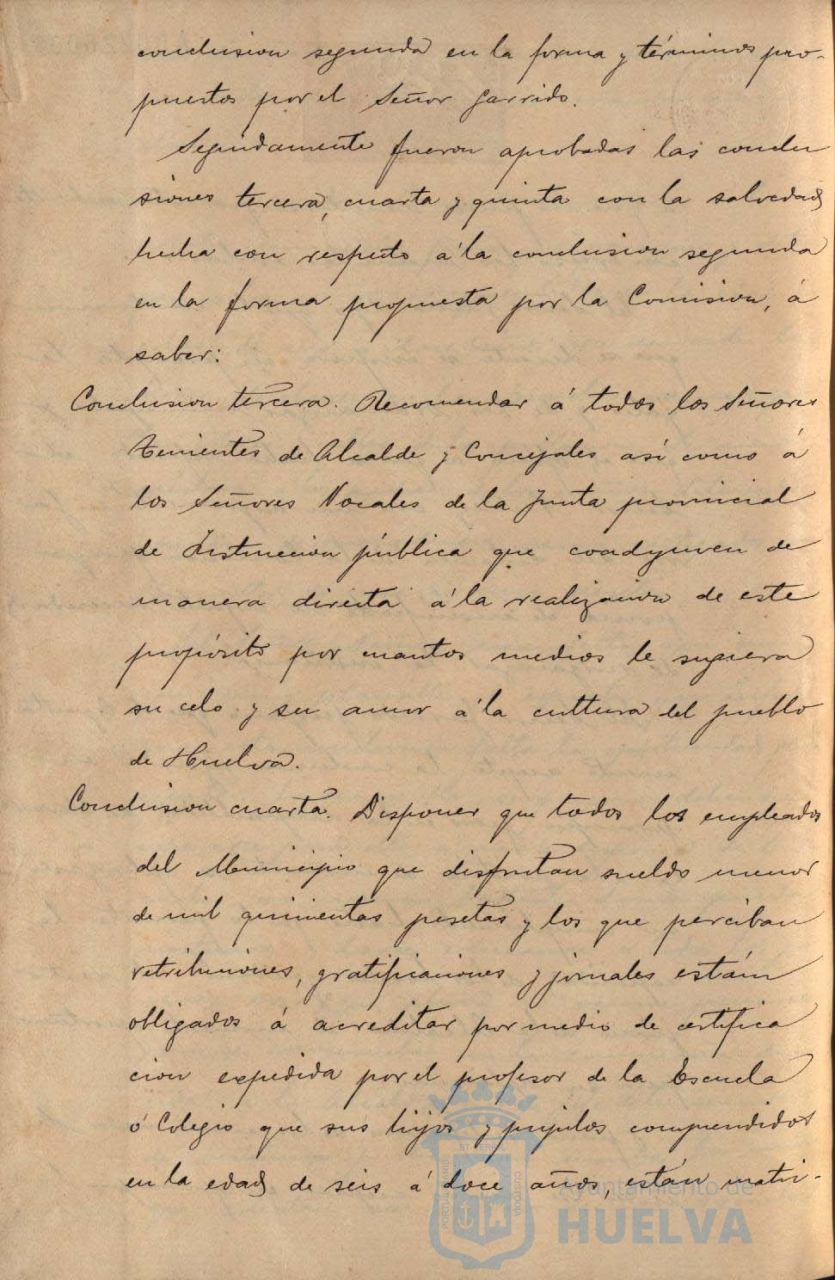 conclusion segunda en la forma y términos pro-
puestos por el Señor Garrido.
Seguidamente fueron aprobadas las conclu
siones tercera, cuarta y quinta con la salvedad
hecha con respecto á la conclusion segunda
en la forma propuesta por la Comision, á
saber:
Conclusion tercera. Recomendar á todos los Señores
Tenientes de Alcalde y Concejales así como á
los Señores Vocales de la Junta provincial
de Instruccion pública que coadyuven de
manera directa á la realizacion de este
propósito por cuantos medios le sugiera
su celo y su amor á la cultura del pueblo
de Huelva.
Conclusion cuarta. Disponer que todos los empleados
del Municipio que disfrutan sueldo menor
de mil quinientas pesetas y los que perciban
retribuciones, gratificaciones y jornales están
obligados á acreditar por medio de certifica
cion expedida por el profesor de la Escuela
ó Colegio que sus hijos y pupilos comprendidos
en la edad de seis á doce años, están matri-
Ayuntamiento de
HUELVA